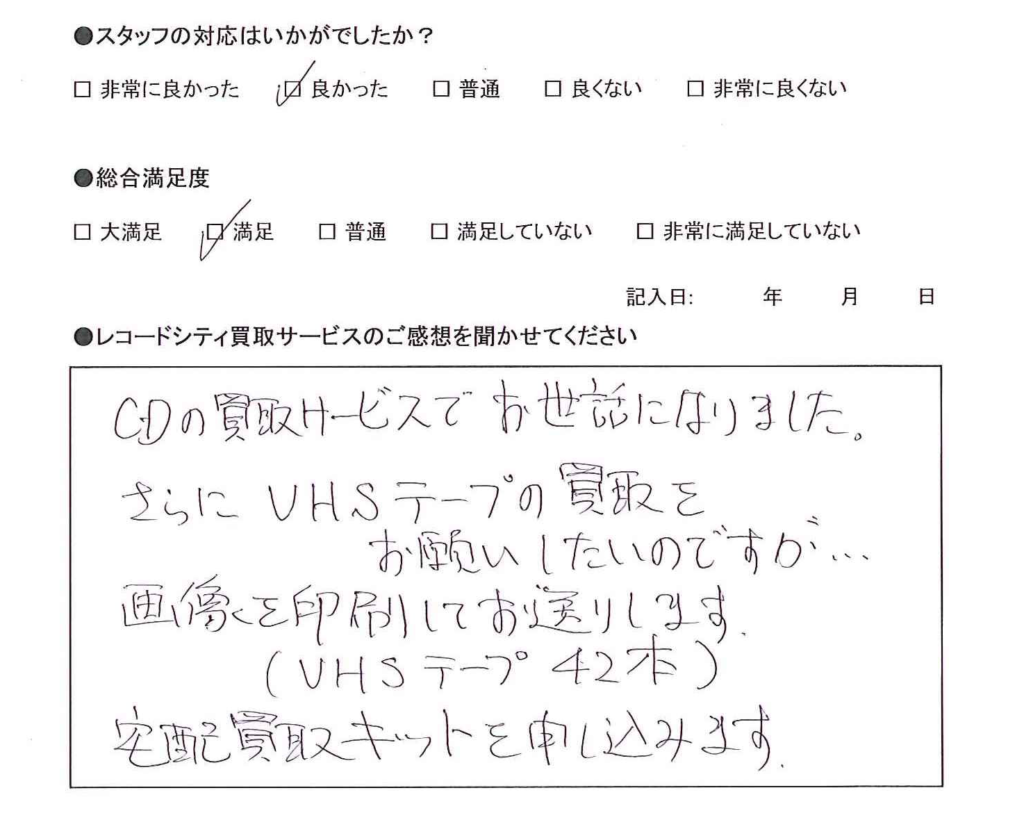 ●スタッフの対応はいかがでしたか？
□ 非常に良かった ☑ 良かった □ 普通 □ 良くない □ 非常に良くない
●総合満足度
□ 大満足 ☑ 満足 □ 普通 □ 満足していない □ 非常に満足していない
記入日: 年 月 日
●レコードシティ買取サービスのご感想を聞かせてください
CDの買取サービスでお世話になりました。
さらにVHSテープの買取を
お願いしたいのですが…
画像を印刷してお送りします.
(VHSテープ 42本)
宅配買取キットを申し込みます.